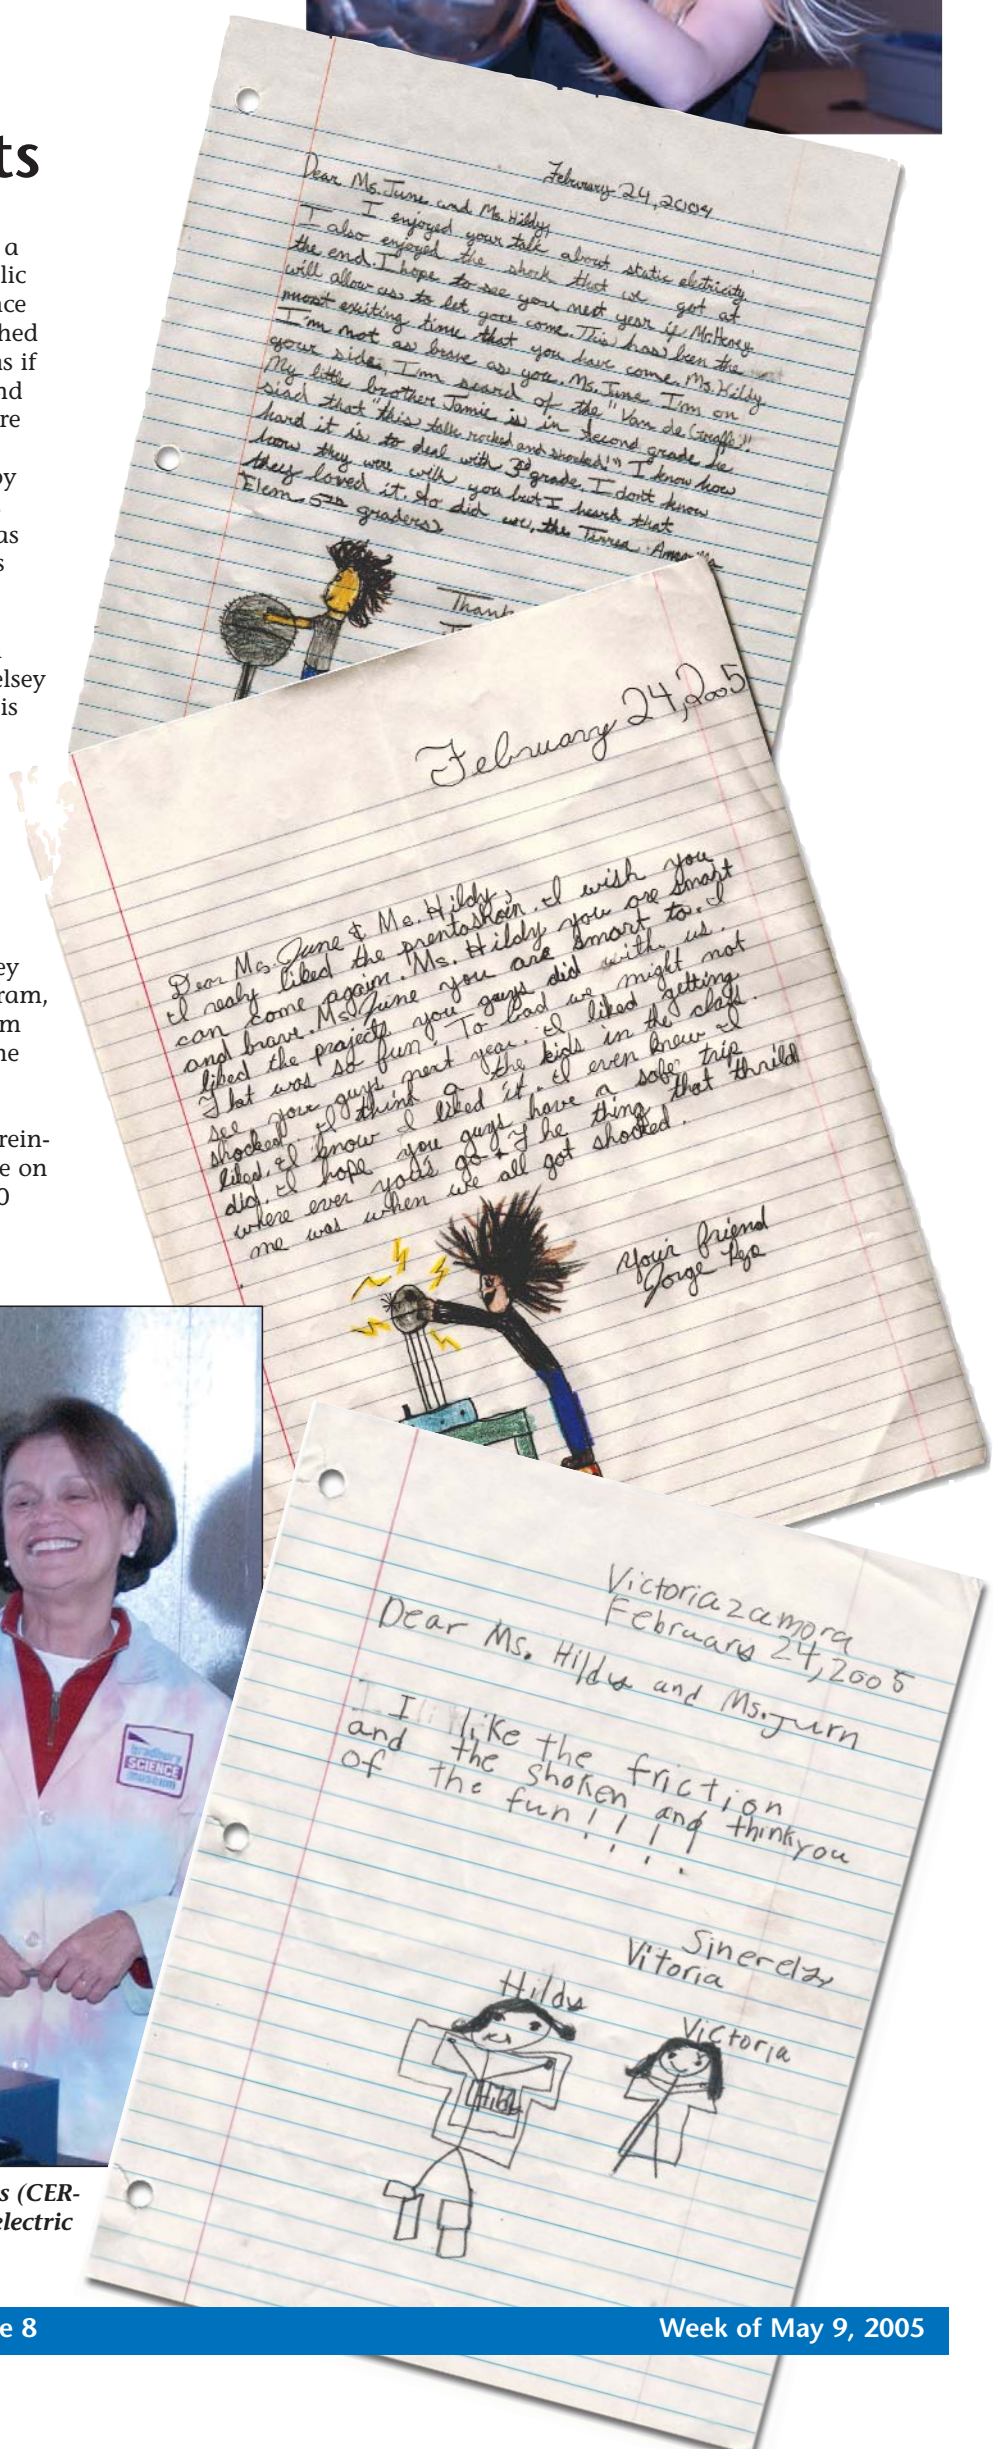 ts
a
lic
nce
hed
as if
nd
re
by
as
s
elsey
is
ey
ram,
m
ne
rein-
e on
0
February 24, 2004
Dear Ms. June and Ms. Hildy,
I enjoyed your talk about static eletricity.
I also enjoyed the shock that we got at
the end. I hope to see you next year if Mr. Henry
will allow us to let you come. This has been the
most exiting time that you have come. Ms. Hildy
I'm not as brave as you. Ms. June I'm on
your side, I'm scard of the "Van de Graffe"!
My little brother Jamie is in second grade he
siad that "this talk rocked and shocked!" I know how
hard it is to deal with 3rd grade. I don't know
how they were with you but I heard that
they loved it. So did we, the Tierra Amarilla
Elem 5th graders
Thank
February 24, 2005
Dear Ms. June & Ms. Hildy,
I realy liked the prentashoin. I wish you
can come again. Ms. Hildy you are smart
and brave. Ms. June you are smart to. I
liked the projects you guys did with us.
That was so fun! To bad we might not
see you guys next year. I liked getting
shocked. I think a the kids in the class
liked, I know I liked it. I even knew I
did. I hope you guys have a safe trip
where ever you's go. The thing that thrild
me was when we all got shocked.
Your friend
Jorge
bradbury
SCIENCE
museum
Victoria zamora
February 24, 2005
Dear Ms. Hildy and Ms. Jurn
I like the friction
and the shoken and thinkyou
of the fun!!!!
Sinerely
Vitoria
Hildy
Victoria
Hildy
s (CER-
electric
e 8
Week of May 9, 2005